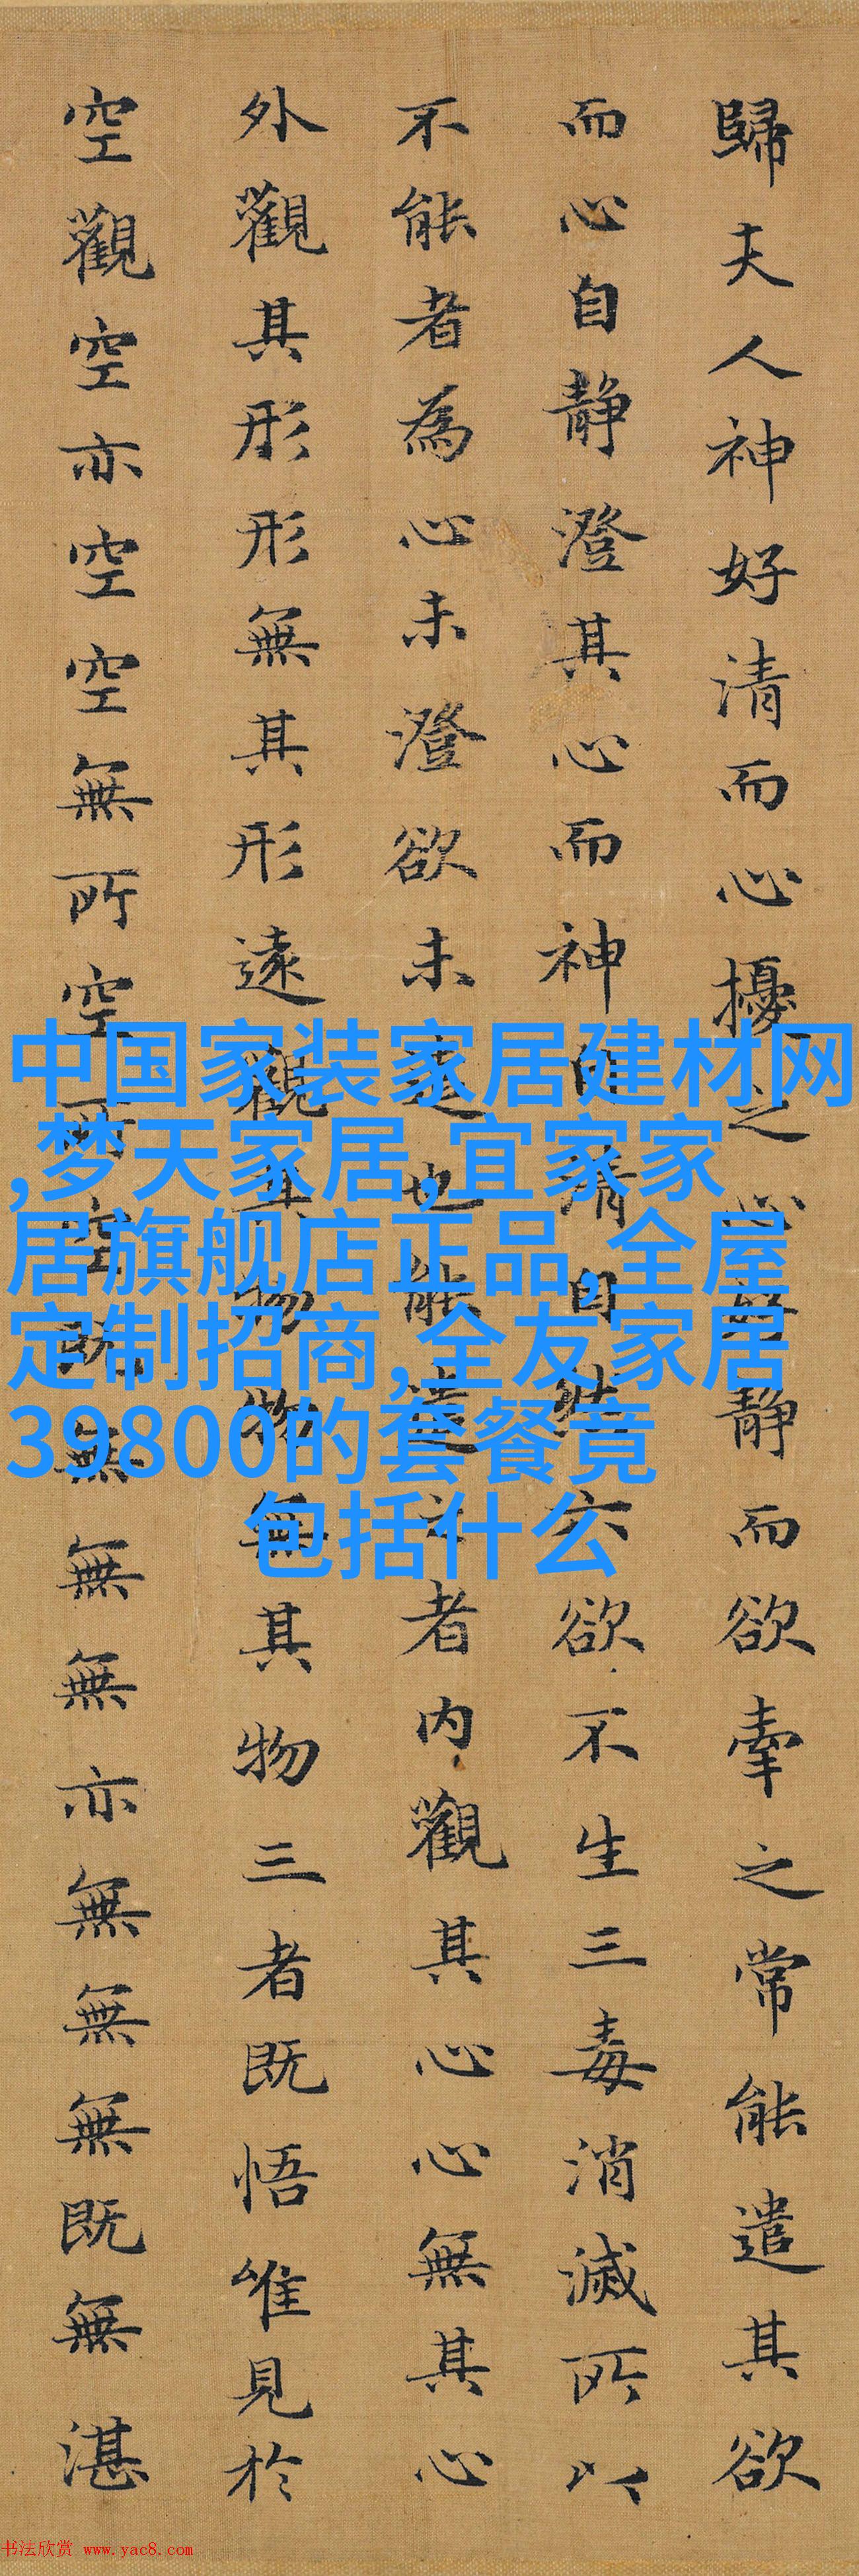 歸夫人神好清而心擾之心好静而欲牽之常能遣其欲
而心自静澄其心而神自清自然六欲不生三毒消滅所以
不能者為心未澄欲未遣也能遣之者内觀其心心無其心
外觀其形形無其形遠觀其物物無其物三者既悟唯見於
空觀空亦空空無所空所空既無無無亦無無無既無湛
中国家装家居建材网
,梦天家居,宜家家
居旗舰店正品,全屋
定制招商,全友家居
39800的套餐竟
包括什么
书法欣赏 www.yac8.com